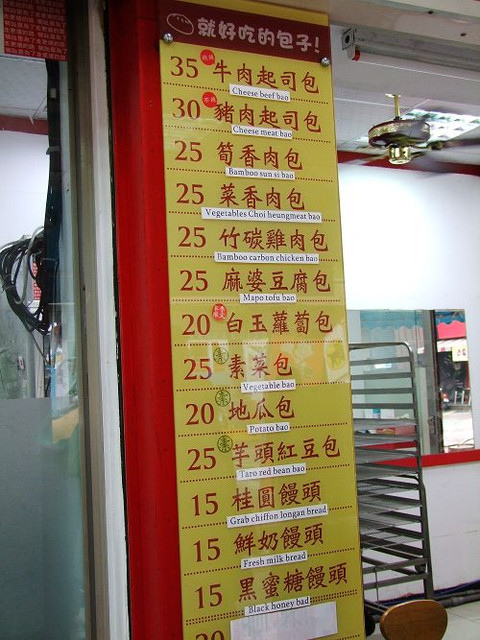 就好吃的包子!
35 牛肉起司包
Cheese beef bao
30 豬肉起司包
Cheese meat bao
25 筍香肉包
Bamboo sun si bao
25 菜香肉包
Vegetables Choi heungmeat bao
25 竹碳雞肉包
Bamboo carbon chicken bao
25 麻婆豆腐包
Mapo tofu bao
20 白玉蘿蔔包
25 素 素菜包
Vegetable bao
20 素 地瓜包
Potato bao
25 素 芋頭紅豆包
Taro red bean bao
15 桂圓饅頭
Grab chiffon longan bread
15 鮮奶饅頭
Fresh milk bread
15 黑蜜糖饅頭
Black honey bad
20